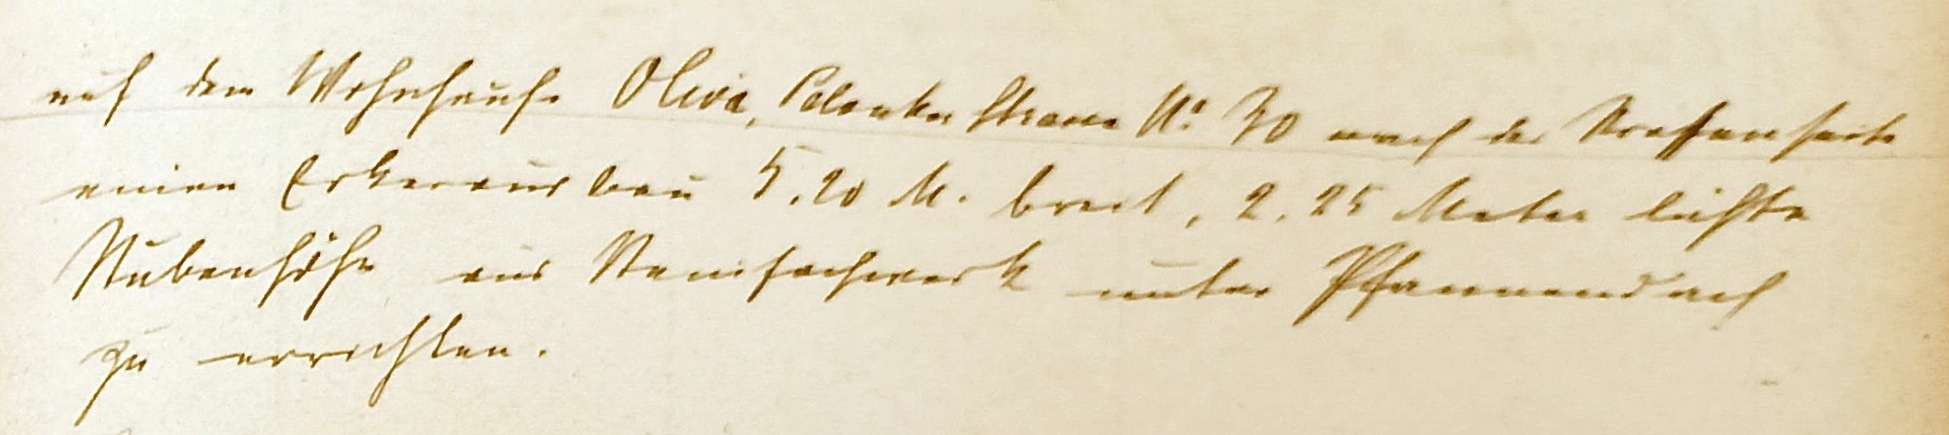 auf dem Wohnhause Oliva, Pelonker Strasse No 30 nach der Strassenseite
einen Erkerausbau 5,20 M. breit, 2.25 Meter lichte
Stubenhöhe aus Steinfachwerk unter Pfannendach
zu errichten.